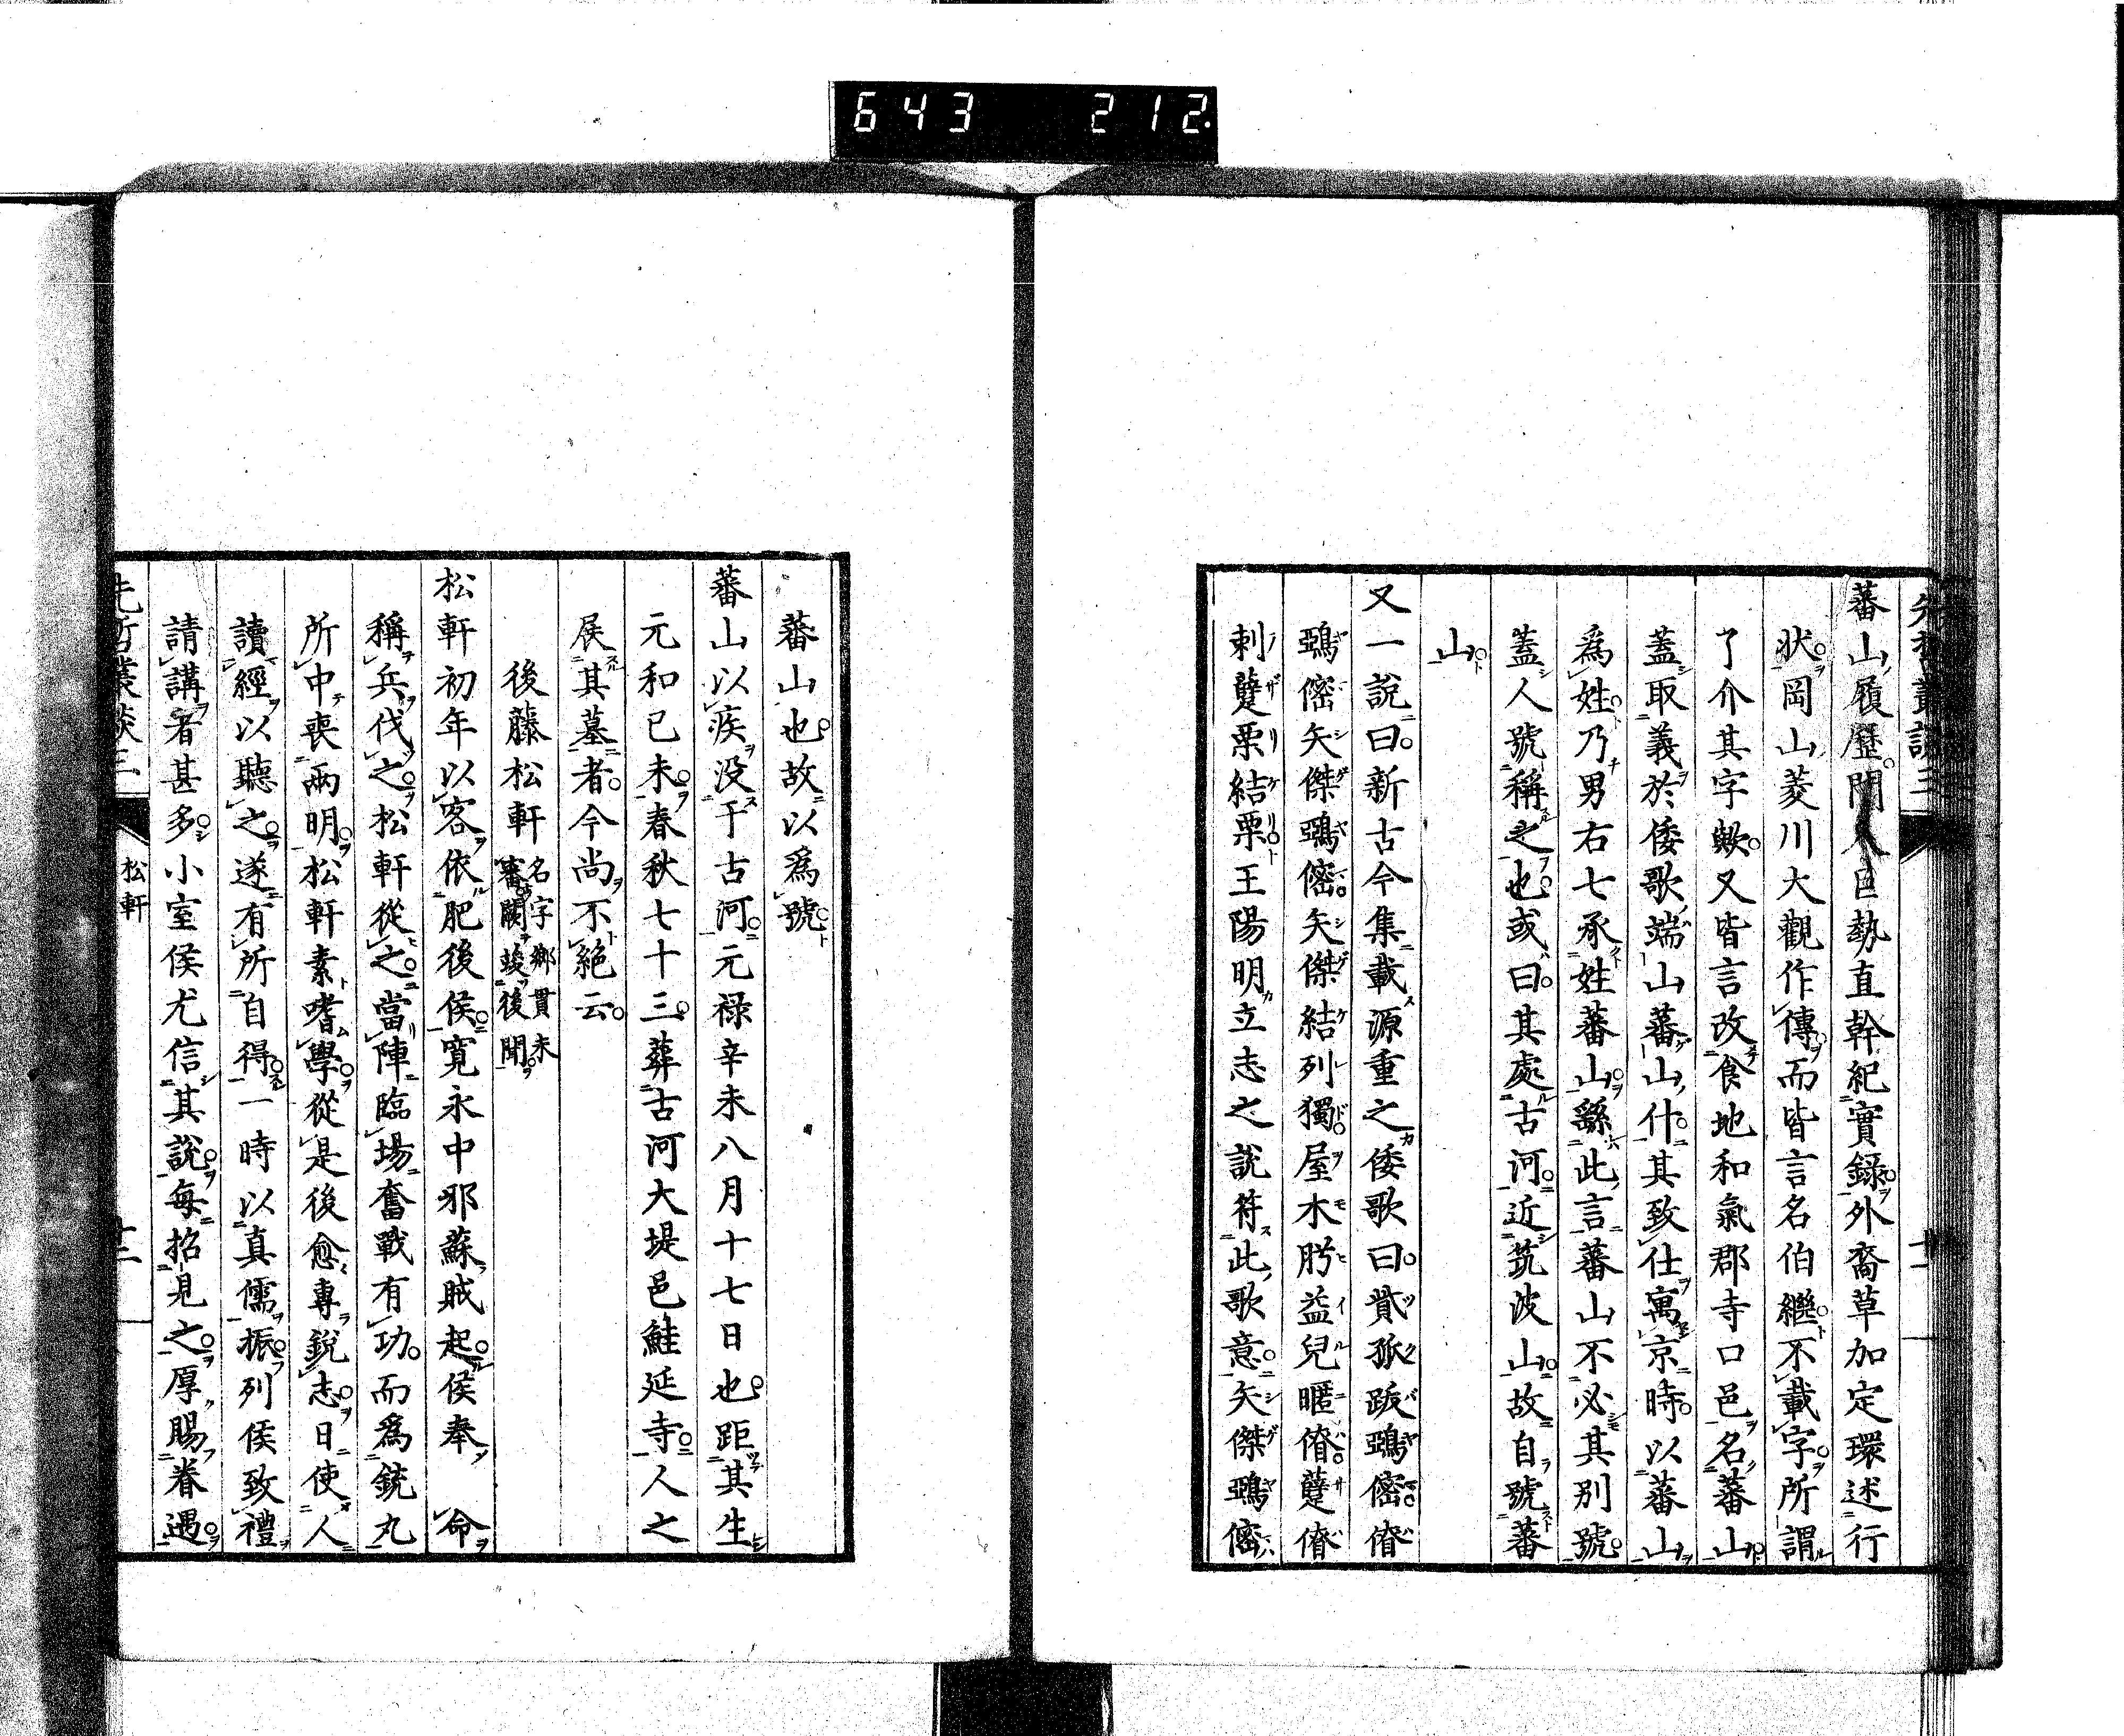 643 212
蕃山履歷門人巨勢直幹紀實錄外裔草加定環述行
狀岡山菱川大觀作傳而皆言名伯繼不載字所謂
了介其字歟又皆言改食地和氣郡寺口邑名蕃山
蓋取義於倭歌端山蕃山什其致仕寓京時以蕃山
爲姓乃男右七承姓蕃山繇此言蕃山不必其別號
蓋人號稱之也或曰其處古河近筑波山故自號蕃
山
又一說曰新古今集載源重之倭歌曰
剌
結
王陽明立志之說符此歌意矢傑鵶
蕃山也故以爲號
蕃山以疾沒于古河元祿辛未八月十七日也距其生
元和已未春秋七十三葬古河大堤邑鮭延寺人之
展其墓者今尚不絕云
後藤松軒名字鄉貫未審闕竢後聞
松軒初年以客依肥後侯寬永中邪蘇賊起侯奉 命
稱兵伐之松軒從之當陣臨場奮戰有功而爲銃丸
所中喪兩明松軒素嗜學從是後愈專銳志日使人
讀經以聽之遂有所自得一時以真儒振列侯致禮
請講者甚多小室侯尤信其說每招見之厚賜眷遇
先哲叢談三 松軒 十二